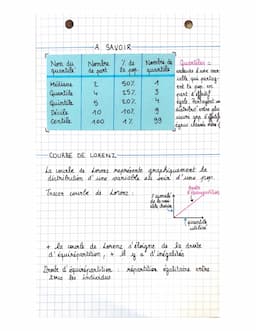 A SAVOIR
Nom du quantile | Nombre de part | % de la pop. | Nombre de quantile
Médiane 2 50% 1
Quartile 4 25% 3
Quintile 5 20% 4
Décile 10 10% 9
Centile 100 1% 99
Quantiles =
valeurs d'une
COURBE DE LORENZ
La courbe de Lorenz représente graphiquement la
distribution d'une variable au sein d'une pop.
Tracer courbe de Lorenz :
Droite
d'équirépartition
% cumulé
de la
quantile
+ la courbe de Lorenz s'éloigne de la droite
d'équirépartition, + il y a d'inégalités
Droite d'équirépartition : répartition égalitaire entre
tous les individus